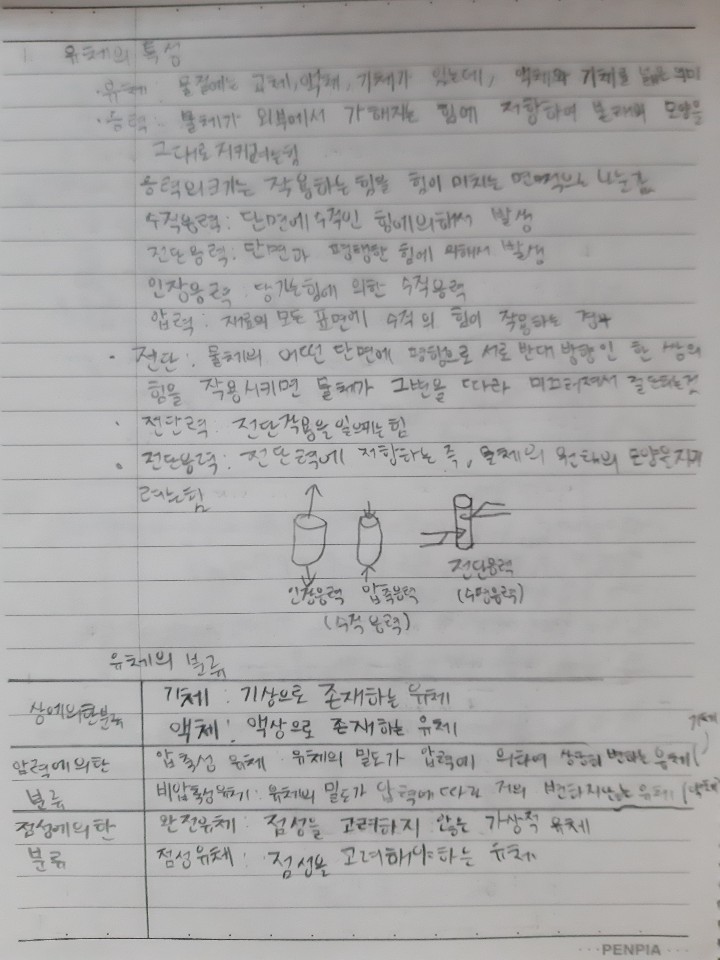 1. 유체의 특성
· 유체 : 물질에는 고체, 액체, 기체가 있는데, 액체와 기체를
· 응력 : 물체가 외부에서 가해지는 힘에 저항하여 물체의 모양을
그대로 지키려는힘
응력의크기는 작용하는 힘을 힘이 미치는 면적으로 나눈값
수직응력 : 단면에수직인 힘에의해서 발생
전단응력 : 단면과 평행한 힘에 의해서 발생
인장응력 : 당기는힘에 의한 수직응력
압력 : 재료의 모든 표면에 수직의 힘이 작용하는 경우
· 전단 : 물체의 어떤 단면에 평행으로 서로 반대 방향인 한 쌍의
힘을 작용시키면 물체가 그변을 따라 미끄러져서 절단되는것
· 전단력 : 전단작용을 일으키는 힘
· 전단응력 : 전단력에 저항하는 즉, 물체의 원래의 모양을지키
려는힘
인장응력 압축응력 전단응력
(수직응력) (수평응력)
유체의 분류
상에의한분류 기체 : 기상으로 존재하는 유체
액체 : 액상으로 존재하는 유체
압력에의한 압축성 유체 : 유체의 밀도가 압력에 의하여 변하는 유체(기체)
분류 비압축성유체 : 유체의 밀도가 압력에 따라 거의 변하지않는 유체(액체)
점성에의한 완전유체 : 점성을 고려하지 않은 가상적 유체
분류 점성유체 : 점성을 고려해야하는 유체
PENPIA